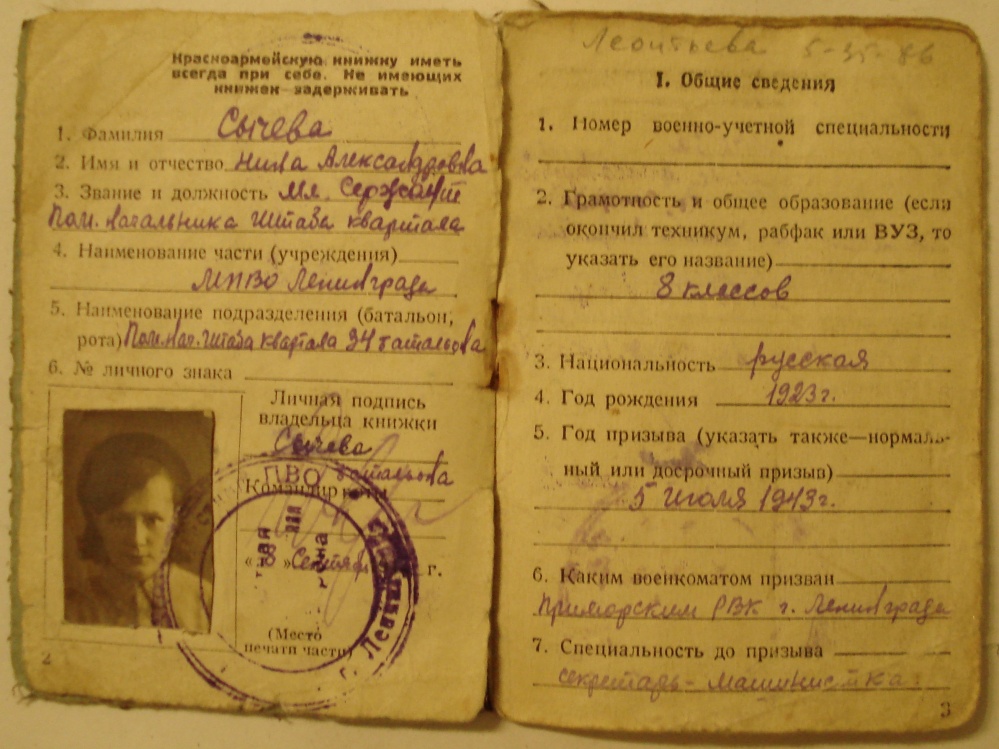 Красноармейскую книжку иметь
всегда при себе. Не имеющих
книжек задерживать
1. Фамилия Сычева
2. Имя и отчество Нина Александровна
3. Звание и должность Мл. Сержант
Пом. Начальника Штаба квартала
4. Наименование части (учреждения)
МПВО Ленинграда
5. Наименование подразделения (батальон,
рота) Пом. Нач. Штаба квартала 34 батальона
6. № личного знака
Личная подпись
владельца книжки
Сычева
батальона
Командир роты
ПВО
« 8 » Сентября г.
г. Ленинград
(Место
печати части)
2
Леонтьева 5-35-86
I. Общие сведения
1. Номер военно-учетной специальности
2. Грамотность и общее образование (если
окончил техникум, рабфак или ВУЗ, то
указать его название)
8 классов
3. Национальность русская
4. Год рождения 1923г.
5. Год призыва (указать также—нормаль-
ный или досрочный призыв)
5 Июля 1943г.
6. Каким военкоматом призван
Приморским РВК г. Ленинграда
7. Специальность до призыва
секретарь-машинистка.
3